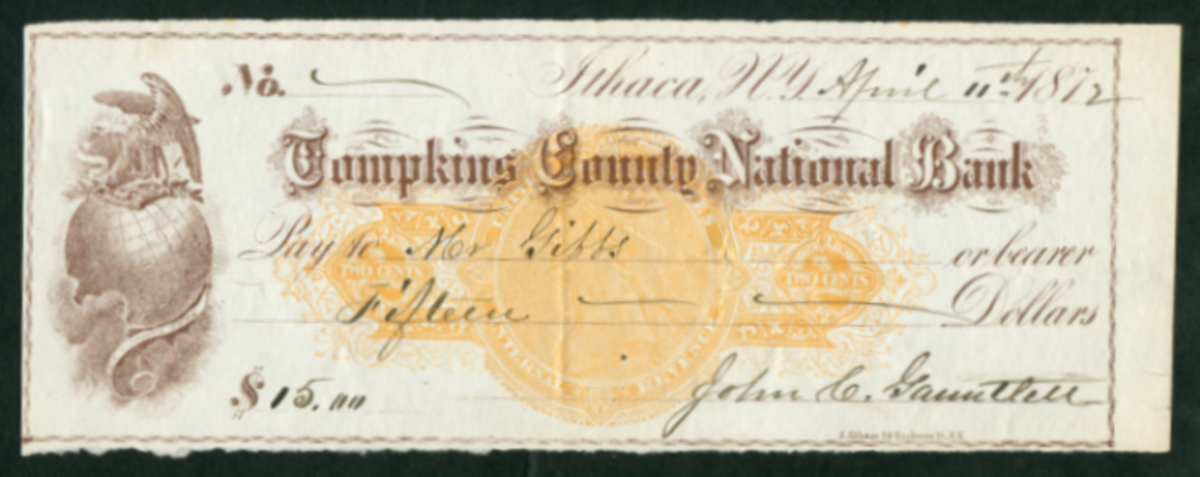 No. Ithaca, N.Y. April 11th 1872
Tompkins County National Bank
Pay to Mr Gibbs or bearer
TWO CENTS TWO CENTS
Fifteen Dollars
INTERNAL REVENUE
$15.00 John C. Gauntlett